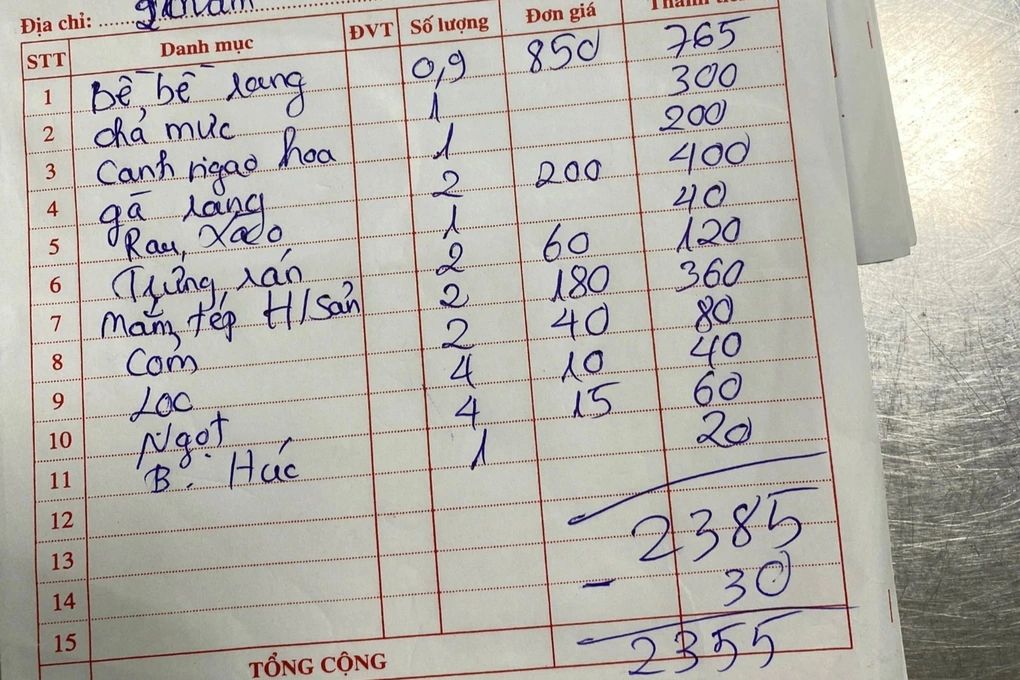 Địa chỉ:
STT Danh mục ĐVT Số lượng Đơn giá
1 Bề bề rang 0,9 850 765
2 chả mực 1 300
3 Canh ngao hoa 1 200
4 gà rang 2 200 400
5 Rau xào 1 40
6 Trứng rán 2 60 120
7 mắm tép H/Sản 2 180 360
8 Cơm 2 40 80
9 Lọc 4 10 40
10 Ngọt 4 15 60
11 B. Húc 1 20
12 2385
13
14 - 30
15 2355
TỔNG CỘNG